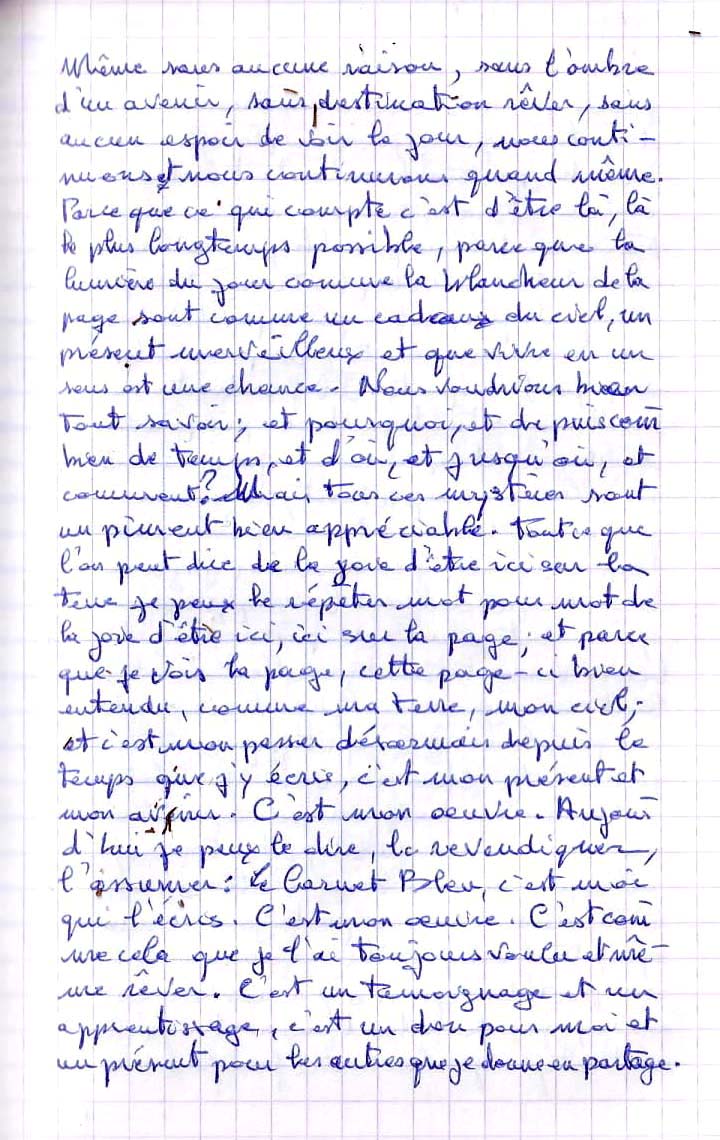 Même sans aucune raison, sans l'ombre
d'un avenir, sans destination rêver, sans
aucun espoir de voir le jour, nous conti-
nuons et nous continurons quand même.
Parce que ce qui compte c'est d'être là, là
le plus longtemps possible, parce que la
lumière du jour comme la blancheur de la
page sont comme un cadeaux du ciel, un
présent merveilleux et que vivre en un
sens est une chance. Nous voudrions bien
tout savoir; et pourquoi, et depuis com
bien de temps, et d'où, et jusqu'où, et
comment? Mais tous ces mystères sont
un piment bien appréciable. Tout ce que
l'on peut dire de la joie d'être ici sur la
terre je peux le répéter mot pour mot de
la joie d'être ici, ici sur la page; et parce
que je vois la page, cette page-ci bien
entendu, comme ma terre, mon ciel;
et c'est mon passer désormais depuis le
temps que j'y écris, c'est mon présent et
mon avenir. C'est mon oeuvre. Aujour
d'hui je peux le dire, le revendiquer,
l'assumer: le Carnet Bleu, c'est moi
qui l'écris. C'est mon oeuvre. C'est com
me cela que je l'ai toujours voulu et mê-
me rêver. C'est un témoignage et un
apprentissage, c'est un don pour moi et
un présent pour les autres que je donne en partage.